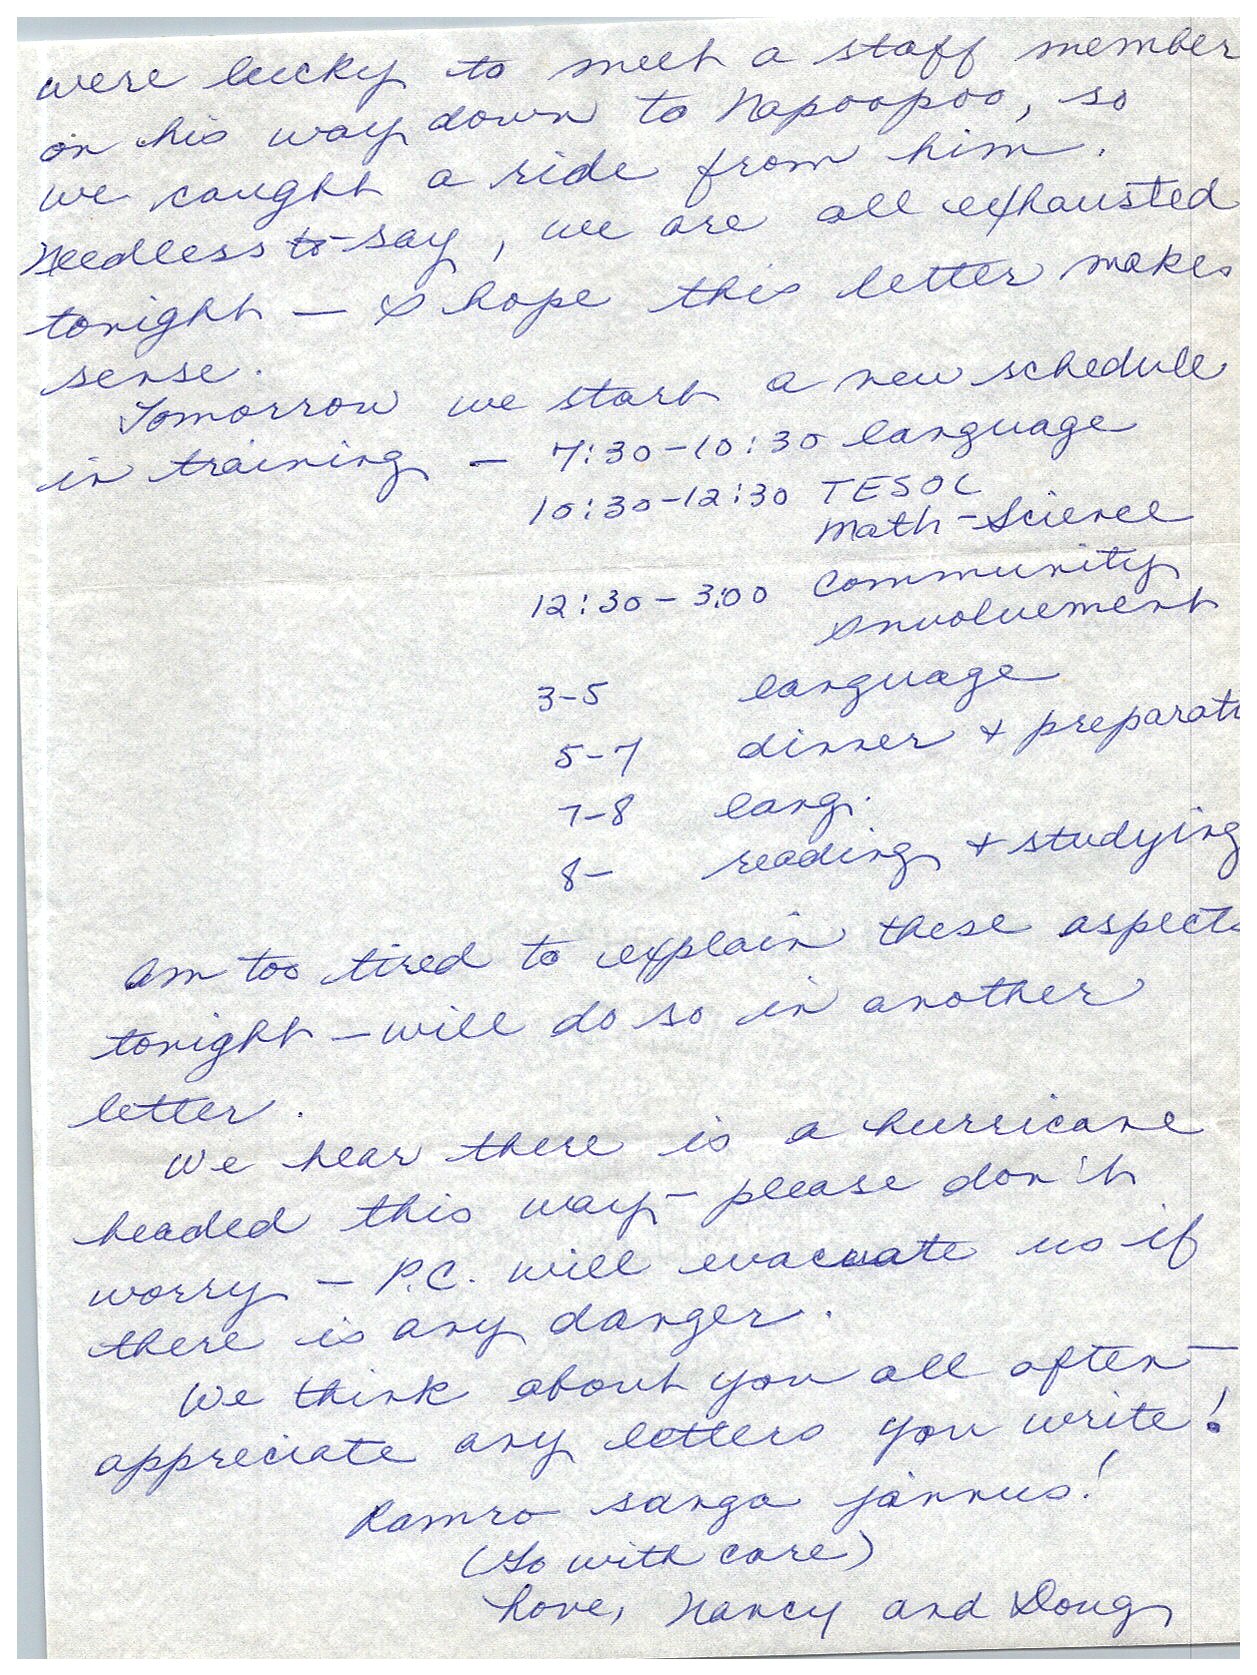 were lucky to meet a staff member
on his way down to Napoopoo, so
we caught a ride from him.
Needless to say, we are all exhausted
tonight — I hope this letter makes
sense.
Tomorrow we start a new schedule
in training — 7:30-10:30 language
10:30-12:30 TESOL
Math-Science
12:30-3:00 Community
Involvement
3-5 language
5-7 dinner + preparati
7-8 lang.
8- reading + studying
Am too tired to explain these aspects
tonight — will do so in another
letter.
We hear there is a hurricane
headed this way — please don't
worry — P.C. will evacuate us if
there is any danger.
We think about you all often —
appreciate any letters you write!
Ramro sanga jānnus!
(Go with care)
Love, Nancy and Doug